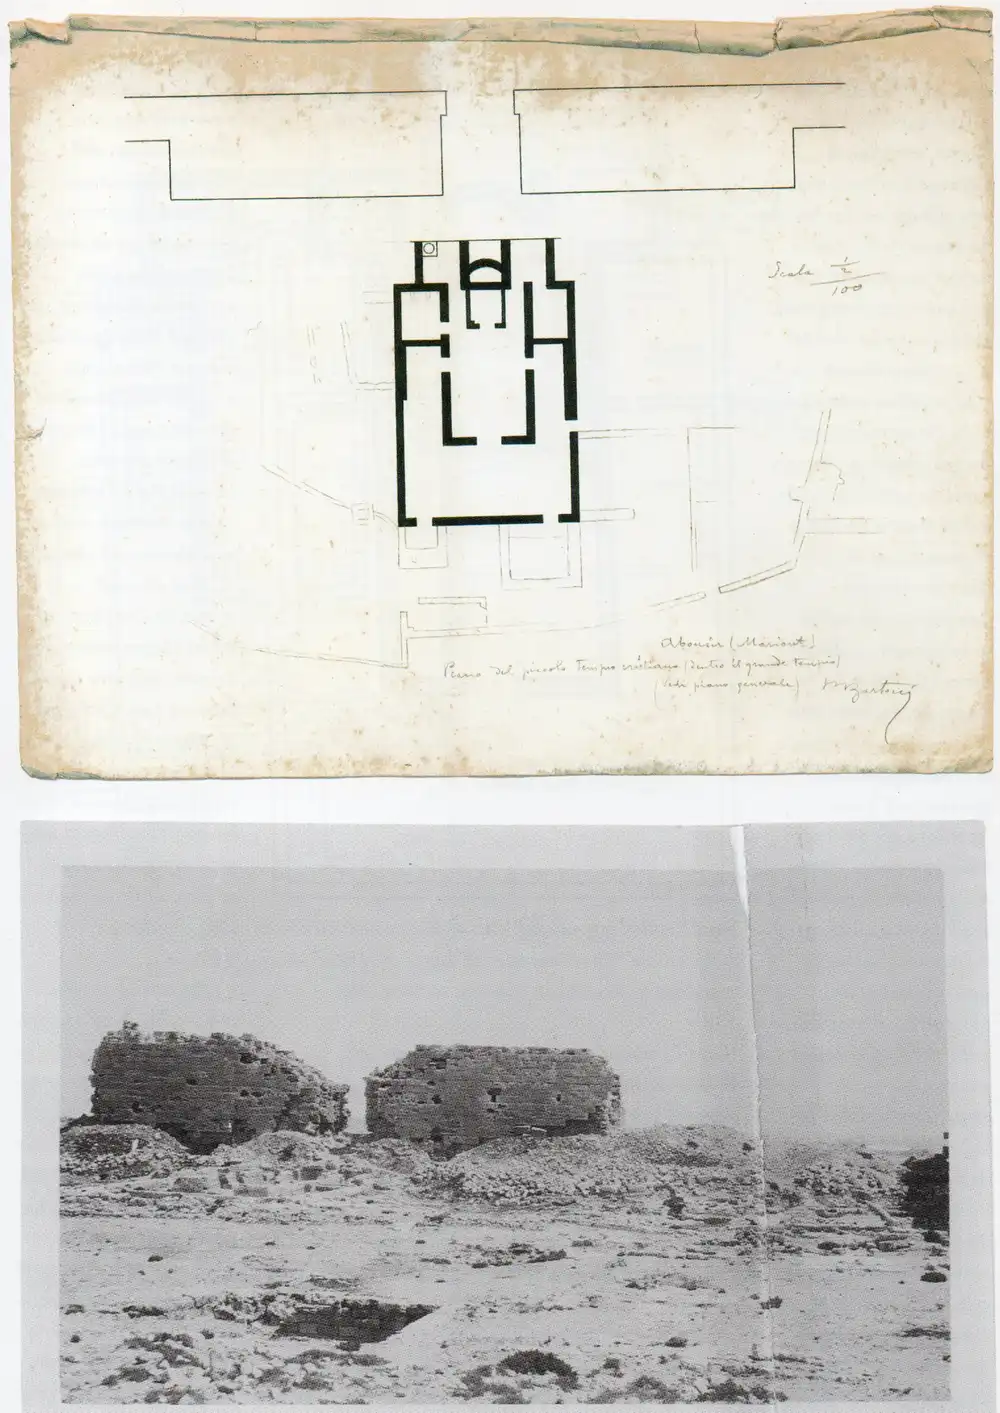 Scala 1/2
100
Abousir (Mariout)
Piano del piccolo tempio cristiano (dentro il grande tempio)
(vedi piano generale)